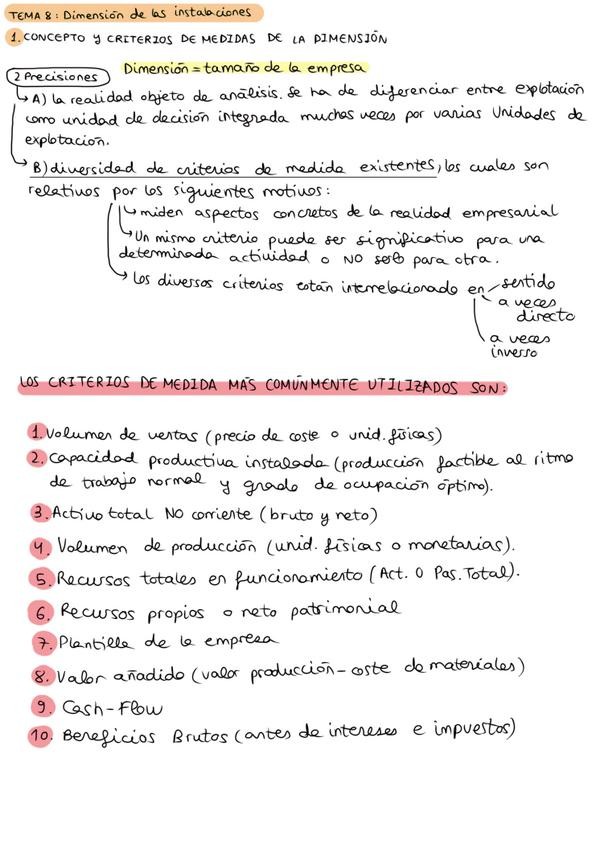 TEMA 8: Dimensión de las instalaciones
1. CONCEPTO y CRITERIOS DE MEDIDAS DE LA DIMENSIÓN
Dimensión = tamaño de la empresa
2 Precisiones
A) la realidad objeto de análisis. Se ha de diferenciar entre explotación
como unidad de decisión integrada muchas veces por varias Unidades de
explotación.
B) diversidad de criterios de medida existentes, los cuales son
relativos por los siguientes motivos:
miden aspectos concretos de la realidad empresarial
Un mismo criterio puede ser significativo para una
determinada actividad o NO serlo para otra.
Los diversos criterios están interrelacionado en sentido
a veces
directo
a veces
inverso
LOS CRITERIOS DE MEDIDA MÁS COMÚNMENTE UTILIZADOS SON:
1. Volumen de ventas (precio de coste o unid. físicas)
2. Capacidad productiva instalada (producción factible al ritmo
de trabajo normal y grado de ocupación óptimo).
3. Activo total NO corriente (bruto y neto)
4. Volumen de producción (unid. físicas o monetarias).
5. Recursos totales en funcionamiento (Act. O Pas. Total).
6. Recursos propios o neto patrimonial
7. Plantilla de la empresa
8. Valor añadido (valor producción - coste de materiales)
9. Cash-Flow
10. Beneficios Brutos (antes de intereses e impuestos)